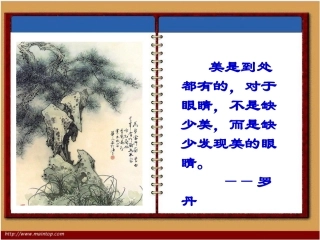 美是到处
都有的，对于
眼睛，不是缺
少美，而是缺
少发现美的眼
睛。
－－罗
丹
http://www.maintop.com